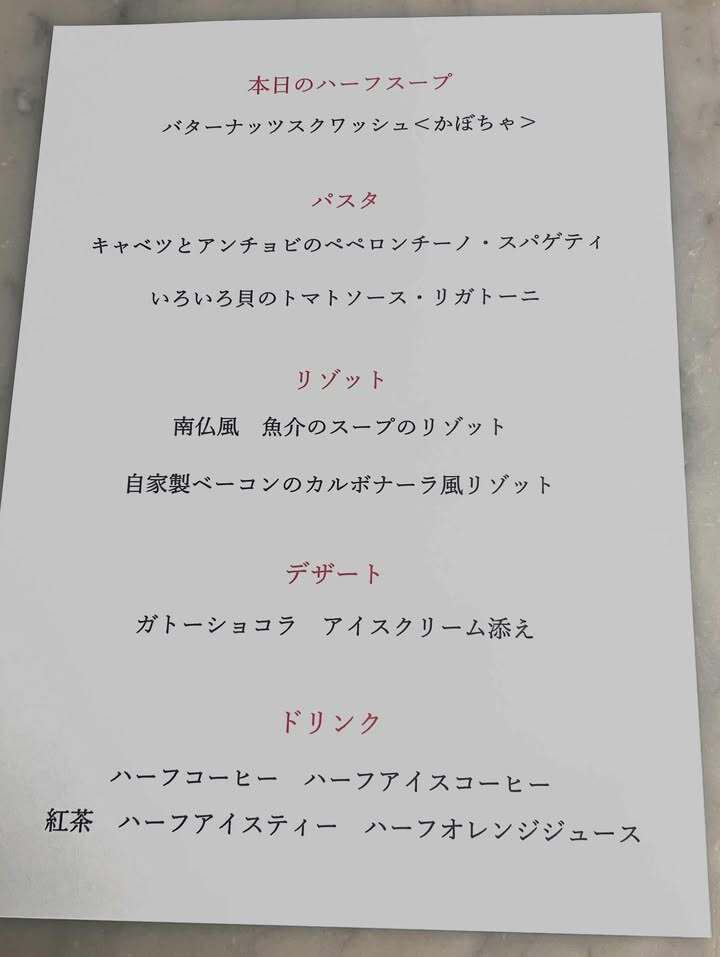 本日のハーフスープ
バターナッツスクワッシュ<かぼちゃ>
パスタ
キャベツとアンチョビのペペロンチーノ・スパゲティ
いろいろ貝のトマトソース・リガトーニ
リゾット
南仏風　魚介のスープのリゾット
自家製ベーコンのカルボナーラ風リゾット
デザート
ガトーショコラ　アイスクリーム添え
ドリンク
ハーフコーヒー　ハーフアイスコーヒー
紅茶　ハーフアイスティー　ハーフオレンジジュース